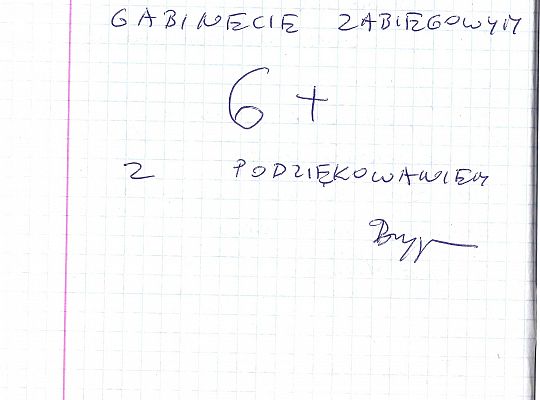 GABINECIE ZABIEGOWYM
6+
Z PODZIĘKOWANIEM